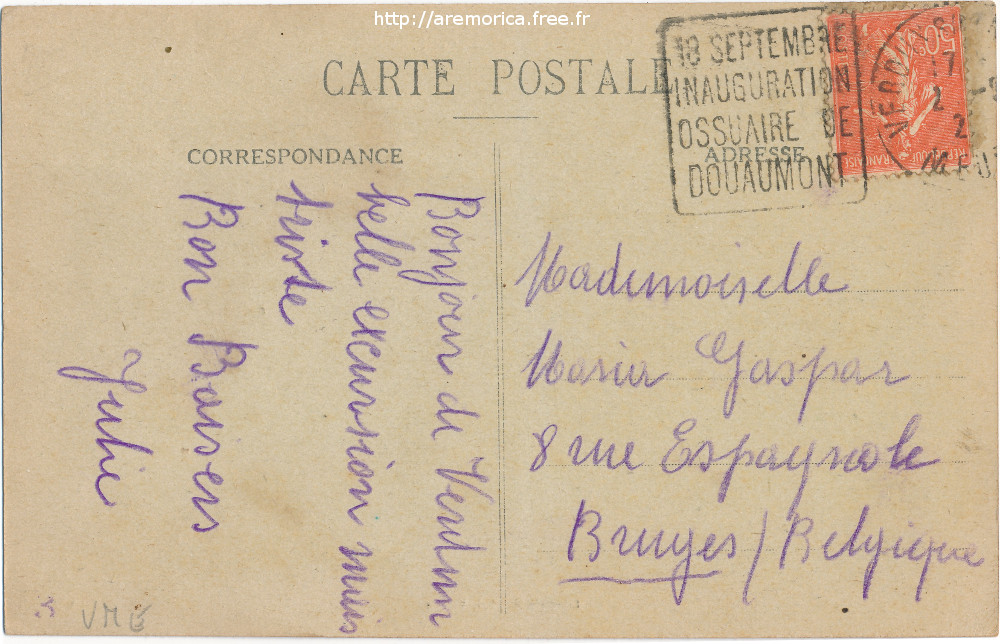 http://aremorica.free.fr
CARTE POSTALE
CORRESPONDANCE
ADRESSE
18 SEPTEMBRE
INAUGURATION
OSSUAIRE DE
DOUAUMONT
50c
VERDUN
17
2
2
Bonjour de Verdun
belle excursion mais
triste
Bon Baisers
Julie
Mademoiselle
Maria Gaspar
8 rue Espagnole
Bruges / Belgique
VME